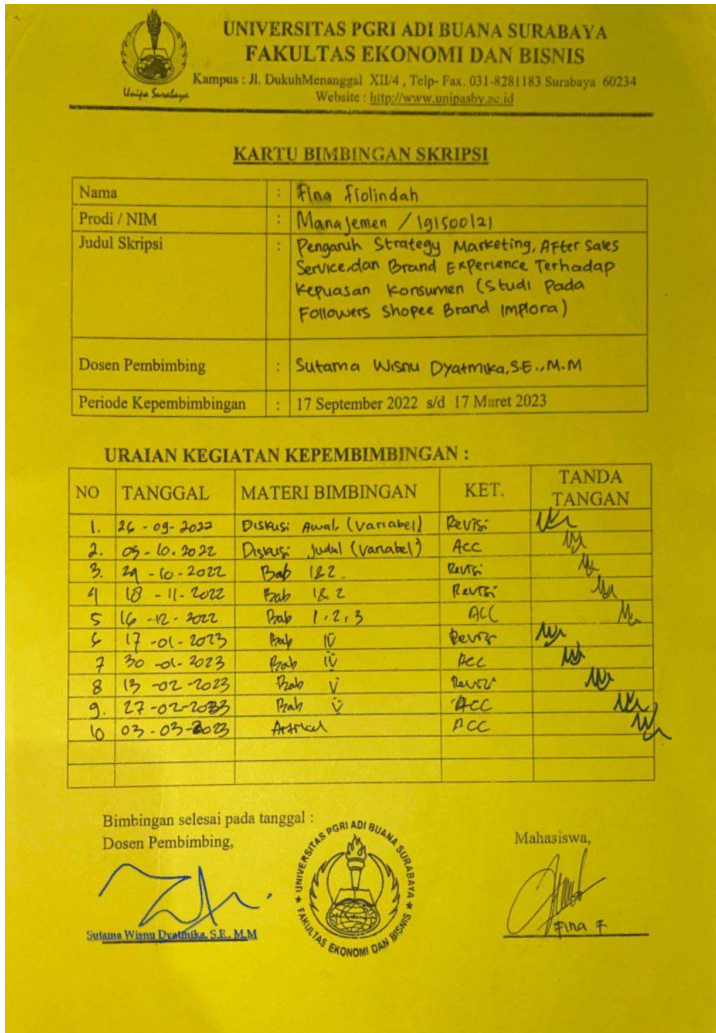 UNIVERSITAS PGRI ADI BUANA SURABAYA
FAKULTAS EKONOMI DAN BISNIS
Kampus : Jl. DukuhMenanggal XII/4 , Telp- Fax. 031-8281183 Surabaya 60234
Website : http://www.unipasby.ac.id
Unipa Surabaya
KARTU BIMBINGAN SKRIPSI
Nama : Fina Fiolindah
Prodi / NIM : Manajemen / 191500121
Judul Skripsi : Pengaruh Strategy Marketing, After Sales
Service, dan Brand Experience Terhadap
Kepuasan Konsumen (Studi Pada
Followers Shopee Brand Implora)
Dosen Pembimbing : Sutama Wisnu Dyatmika, SE., M.M
Periode Kepembimbingan : 17 September 2022 s/d 17 Maret 2023
URAIAN KEGIATAN KEPEMBIMBINGAN :
NO TANGGAL MATERI BIMBINGAN KET. TANDA TANGAN
1. 26 - 09 - 2022 Diskusi Awal (variabel) Revisi
2. 05 - 10 - 2022 Diskusi Judul (variabel) Acc
3. 29 - 10 - 2022 Bab 1 & 2 Revisi
4 18 - 11 - 2022 Bab 1 & 2 Revisi
5 16 - 12 - 2022 Bab 1, 2, 3 ACC
6 17 - 01 - 2023 Bab IV Revisi
7 30 - 01 - 2023 Bab IV Acc
8 13 - 02 - 2023 Bab V Revisi
9. 27 - 02 - 2023 Bab V ACC
10 03 - 03 - 2023 Artikel ACC
Bimbingan selesai pada tanggal :
Dosen Pembimbing,
Mahasiswa,
UNIVERSITAS PGRI ADI BUANA SURABAYA
FAKULTAS EKONOMI DAN BISNIS
Sutama Wisnu Dyatmika, S.E., M.M
Fina F.